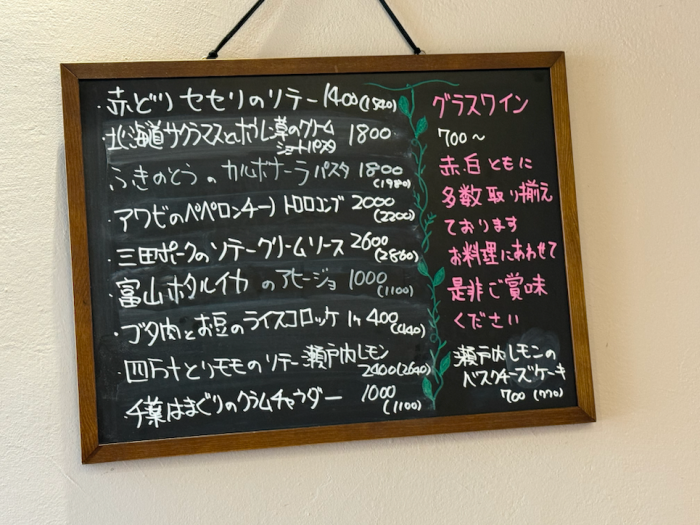 ・赤どり セセリのソテー 1400(1540)
北海道サクラマスとホーレン草のクリーム
ショートパスタ 1800
ふきのとうのカルボナーラパスタ 1800
(1980)
・アワビのペペロンチーノ トロロエンブ 2000
(2200)
・三田ポークのソテークリームソース 2600
(2860)
・富山ホタルイカのアヒージョ 1000
(1100)
・ブタ肉とお豆のライスコロッケ 1ヶ 400
(440)
・四万十とりモモのソテー瀬戸内レモン
2400(2640)
・千葉はまぐりのクラムチャウダー 1000
(1100)
グラスワイン
700～
赤、白ともに
多数取り揃え
ております
お料理にあわせて
是非ご賞味
ください
瀬戸内レモンの
バスクチーズケーキ
700(770)